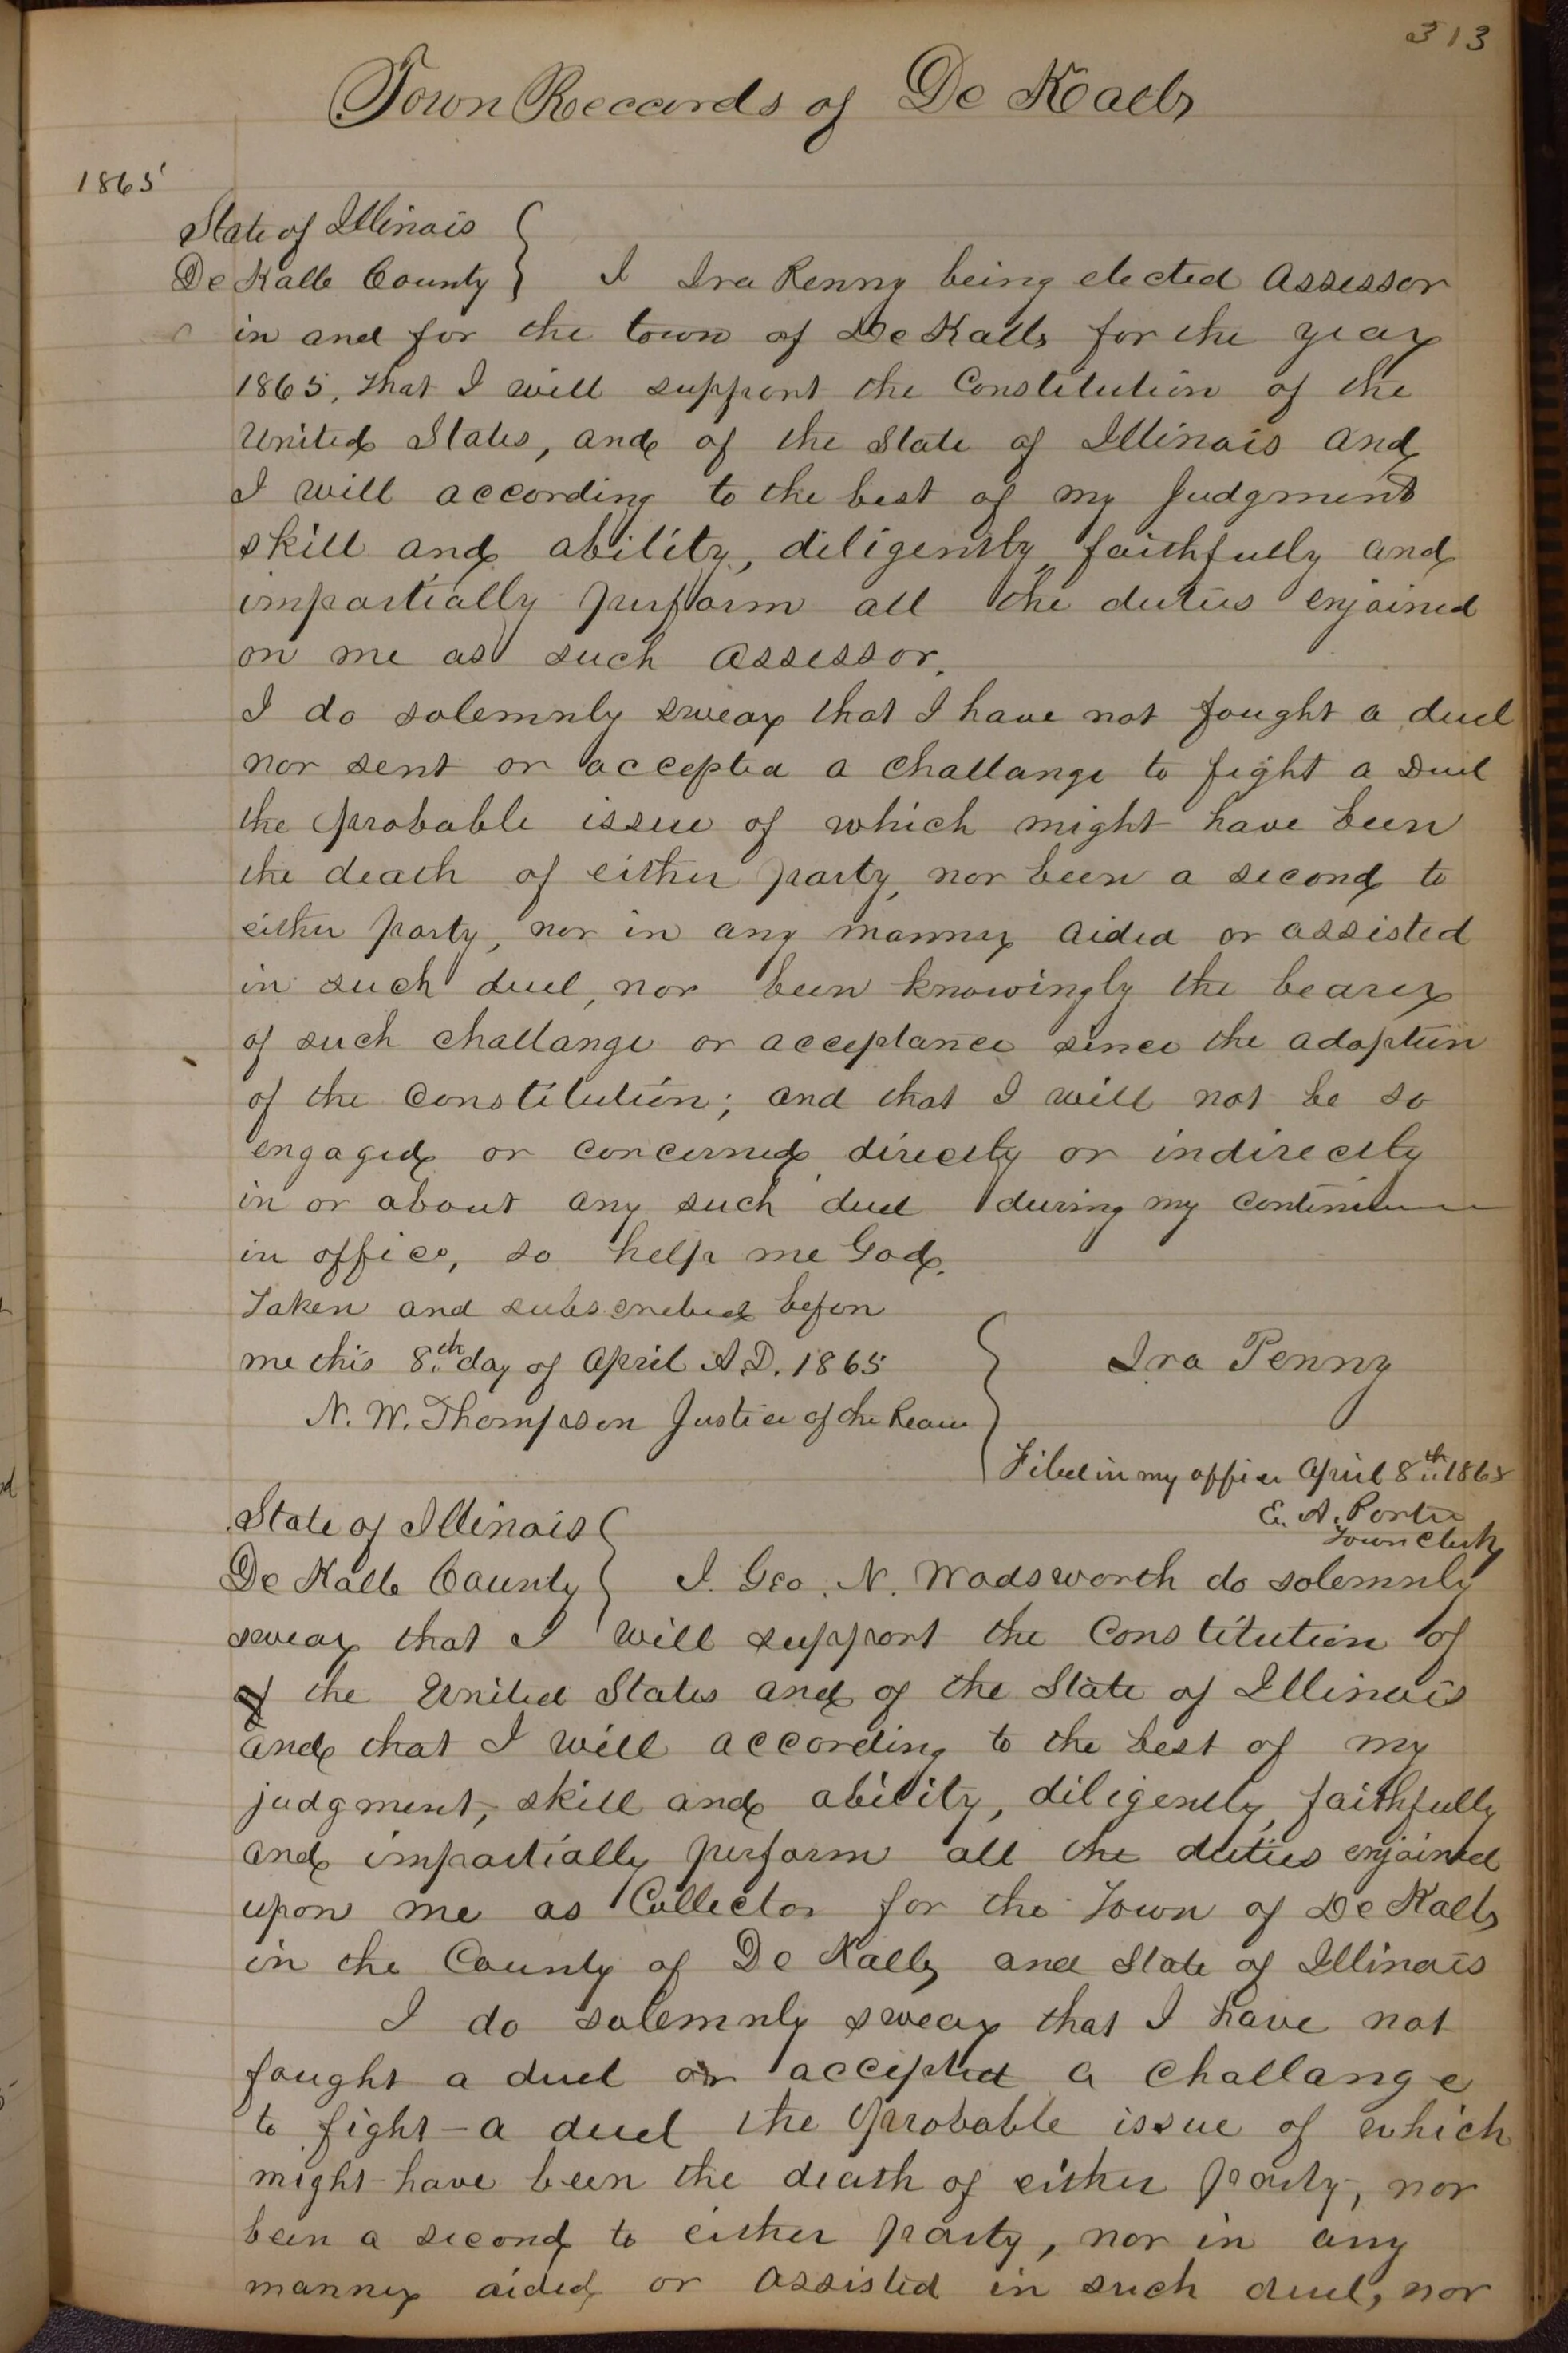 313
Town Records of De Kalb
1865
State of Illinois
De Kalb County } I Ira Penny being elected Assessor
in and for the town of De Kalb for the year
1865, that I will support the Constitution of the
United States, and of the State of Illinois and
I will according to the best of my Judgment
skill and ability, diligently, faithfully and
impartially perform all the duties enjoined
on me as such Assessor.
I do solemnly swear that I have not fought a duel
nor sent or accepted a challange to fight a Duel
the probable issue of which might have been
the death of either party, nor been a second to
either party, nor in any manner aided or assisted
in such duel, nor been knowingly the bearer
of such challange or acceptance since the adoption
of the Constitution; and that I will not be so
engaged or concerned directly or indirectly
in or about any such duel during my
in office, so help me God.
Taken and subscribed before
me this 8th day of April A.D. 1865 } Ira Penny
N. W. Thompson Justice of the Peace
Filed in my office April 8th 1865
E. A. Porter
Town Clerk
State of Illinois
De Kalb County } I. Geo. N. Wadsworth do solemnly
swear that I will support the Constitution of
of the United States and of the State of Illinois
and that I will according to the best of my
judgment, skill and ability, diligently, faithfully
and impartially perform all the duties enjoined
upon me as Collector for the Town of De Kalb
in the County of De Kalb, and State of Illinois
I do solemnly swear that I have not
fought a duel or accepted a challange
to fight - a duel the probable issue of which
might have been the death of either party, nor
been a second to either party, nor in any
manner aided or assisted in such duel, nor